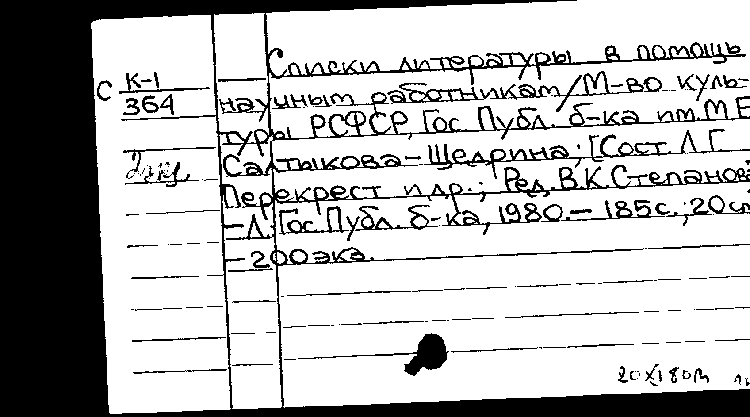 Списки литературы в помощь
С К-1
364
научным работникам/М-во куль-
туры РСФСР, Гос. Публ. б-ка им. М.Е.
Салтыкова-Щедрина; [Сост. Л.Г.
Перекрест и др.; Ред. В.К. Степанова
-Л.: Гос. Публ. б-ка, 1980.- 185с.; 20см
- 200 экз.